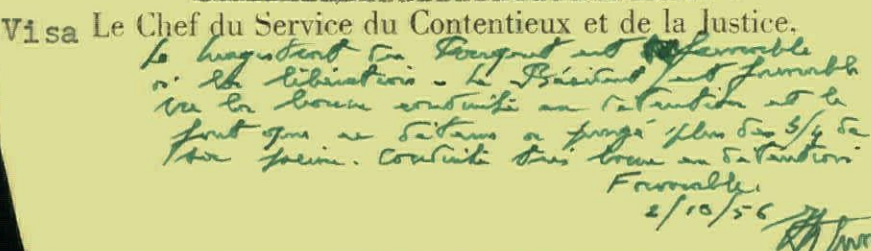 Visa Le Chef du Service du Contentieux et de la Justice.
Le Magistrat du Parquet est favorable
à la libération. Le Résident est favorable
vu la bonne conduite en détention et le
fait que ce détenu a purgé plus des 3/4 de
sa peine. Conduite très bonne en détention
Favorable.
2/10/56